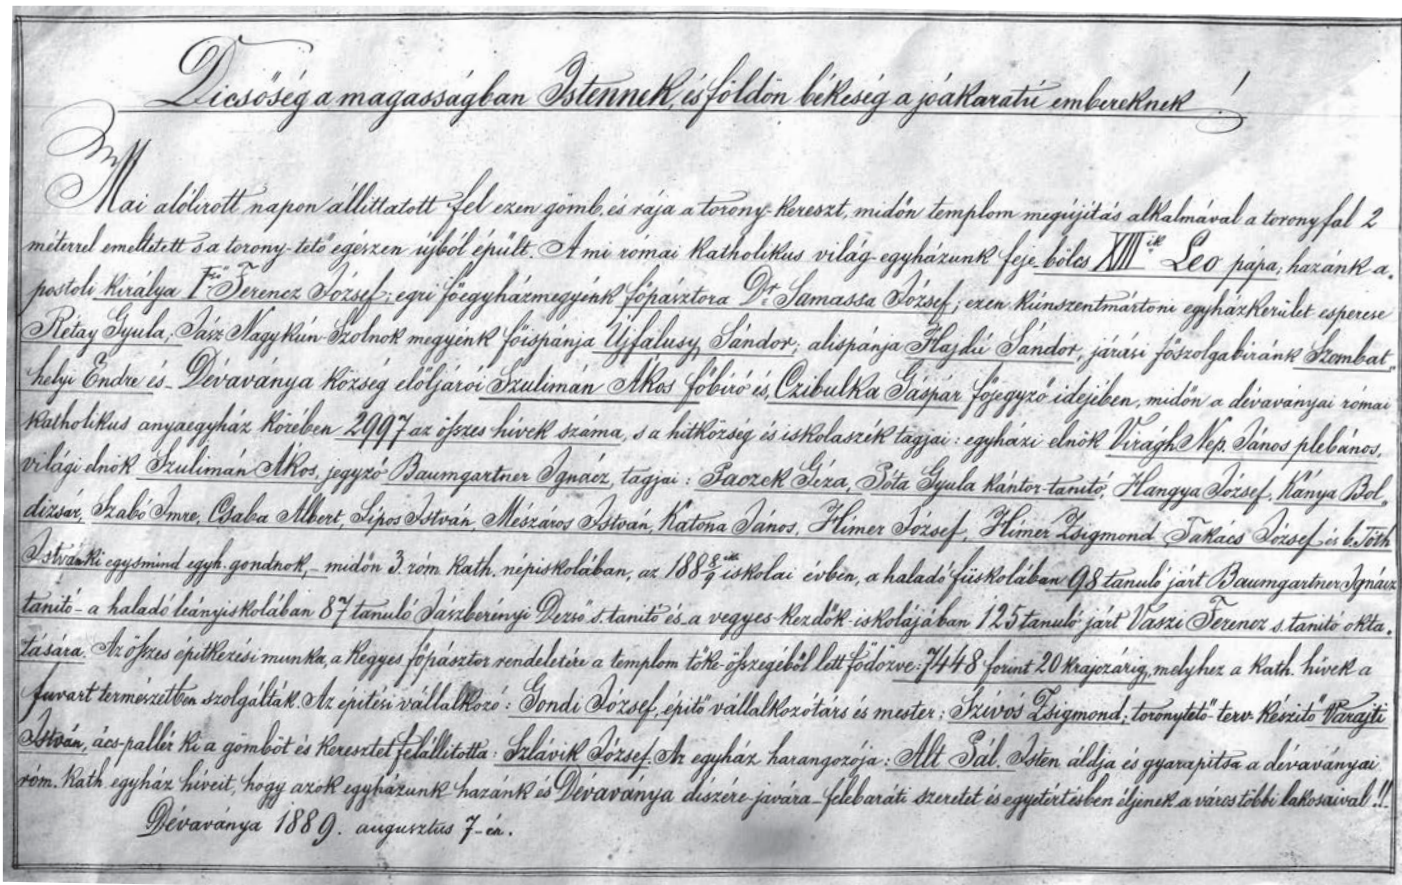 Dicsőség a magasságban Istennek, és földön békeség a jóakaratú embereknek!
Mai alólirott napon állittatott fel ezen gömb, és rája a torony-kereszt, midőn templom megújitás alkalmával a torony fal 2
méterrel emeltetett s a torony-tető egészen újból épült. A mi római katholikus világ-egyházunk feje bölcs XIII ik Leo pápa; hazánk a-
postoli királya I ső Ferencz József; egri főegyházmegyénk főpásztora Dr. Samassa József; ezen kúnszentmártoni egyházkerület esperese
Rétay Gyula; Jász Nagykun-Szolnok megyénk főispánja Újfalusy Sándor; alispánja Hajdú Sándor, járási főszolgabiránk Szombat-
helyi Endre és Dévaványa község elöljárói Szulimán Ákos főbiró és Czibulka Gáspár főjegyző idejében, midőn a dévaványai római
katholikus anyaegyház körében 2997 az összes hívek száma, s a hitközség és iskolaszék tagjai: egyházi elnök Virágh Nep. János plébános,
világi elnök Szulimán Ákos, jegyző Baumgartner Ignácz, tagjai: Paczek Géza, Póta Gyula kántor-tanitó, Hangya József, Kánya Bol-
dizsár, Szabó Imre, Csaba Albert, Sípos István, Mészáros István, Katona János, Hímer József, Hímer Zsigmond Takács József és b. Tóth
István ki egysmind egyh. gondnok, – midőn 3 róm. kath. népiskolában, az 188 8/9 ik iskolai évben, a haladó fiúskolában 98 tanuló járt Baumgartner Ignácz
tanitó – a haladó leányiskolában 87 tanuló Jászberényi Dezső s. tanitó és a vegyes-kezdők-iskolájában 125 tanuló járt Vaszi Ferencz s. tanitó okta-
tására. Az összes épitkezési munka, a kegyes főpásztor rendeletére a templom tőke-összegéből lett födözve: 7448 forint 20 krajczárig, melyhez a kath. hívek a
fuvart természetben szolgálták. Az épitési vállalkozó: Gondi József, épitő vállalkozótárs és mester; Szívós Zsigmond; toronytető-terv készitő Varajti
István, ács-pallér ki a gömböt és keresztet felállitotta: Szlávik József. Az egyház harangozója: Alt Pál. Isten áldja és gyarapitsa a dévaványai
róm. kath. egyház híveit, hogy azok egyházunk hazánk és Dévaványa díszére-javára – felebaráti szeretet és egyetértésben éljenek a város többi lakosaival!!!
Dévaványa 1889. augusztus 7-én.